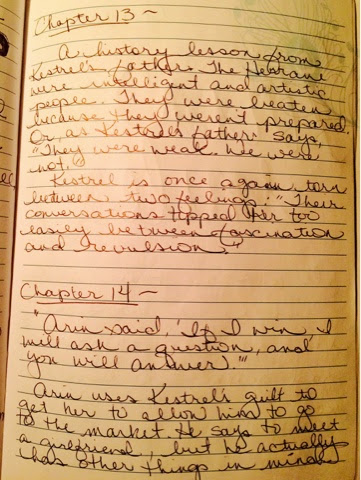 Chapter 13 ~
A history lesson from
Kestrel's father. The Herrani
were intelligent and artistic
people. They were beaten
because they weren't prepared.
Or, as Kestrel's father says,
"They were weak. We were
not."
Kestrel is once again torn
between two feelings: "Their
conversations tipped her too
easily between fascination
and revulsion."
Chapter 14 ~
"Arin said, 'If I win I
will ask a question, and
you will answer.'"
Arin uses Kestrel's guilt to
get her to allow him to go
to the market. He says to meet
a girlfriend, but he actually
has other things in mind.